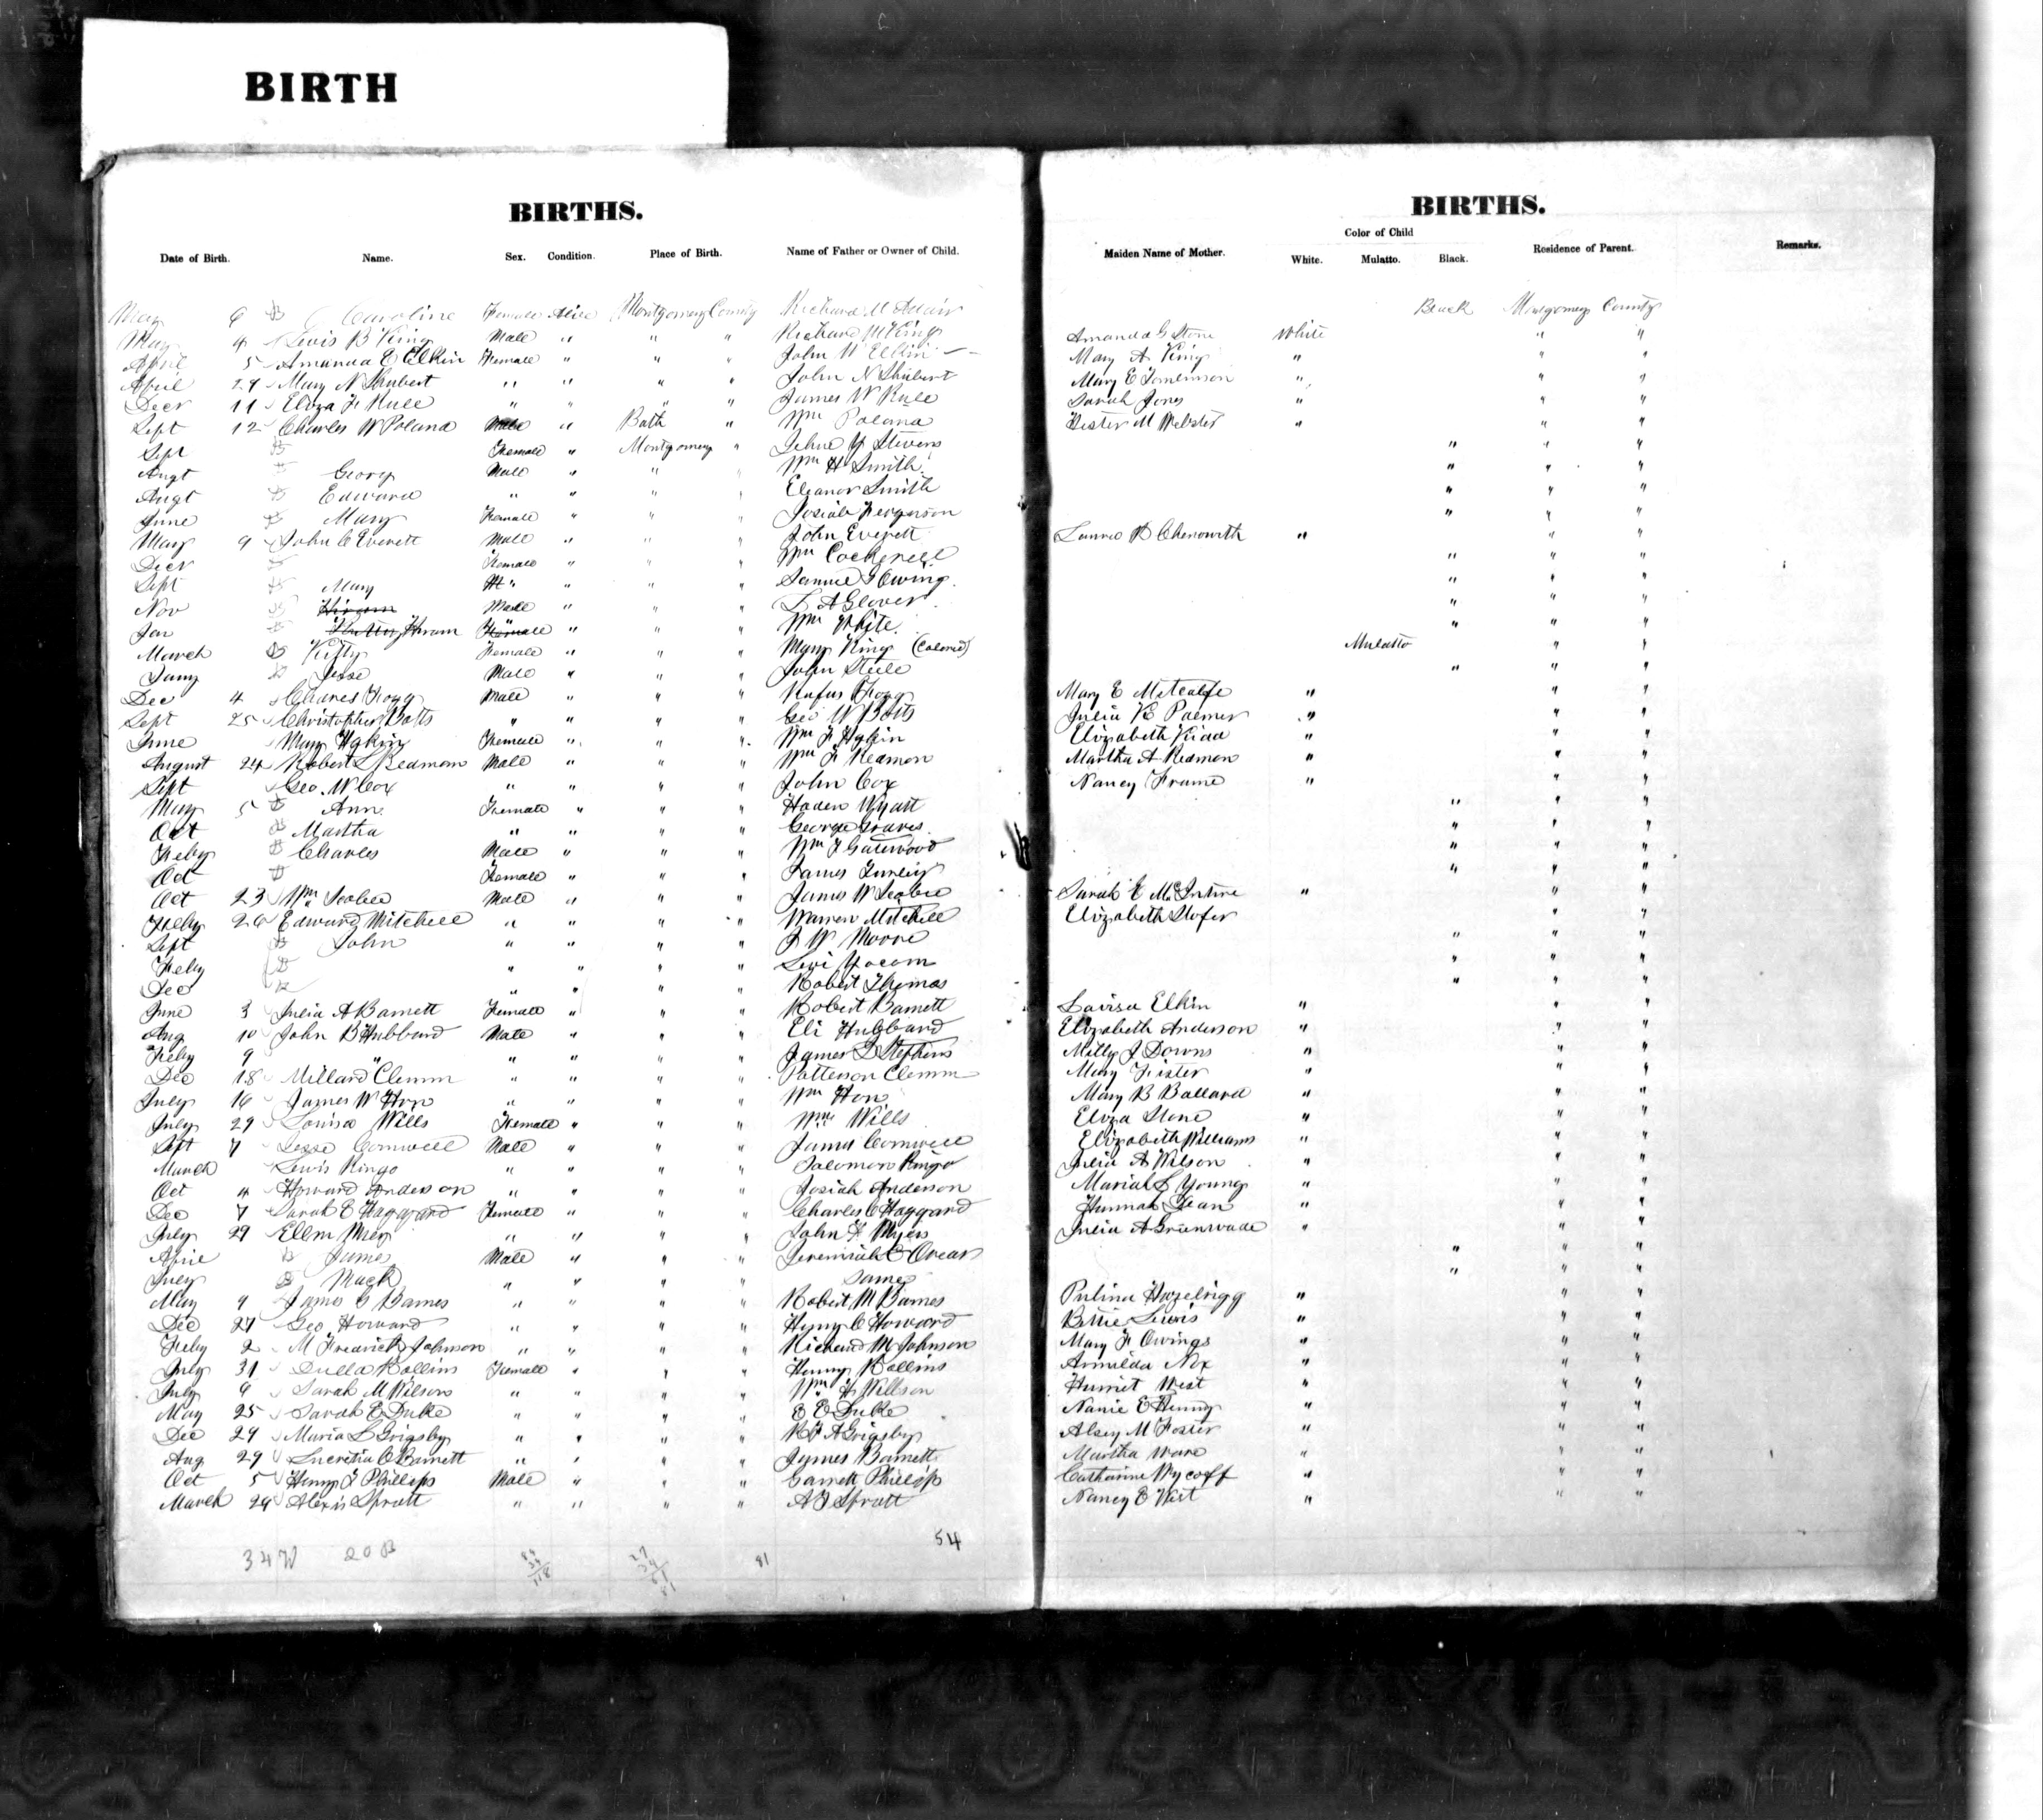 BIRTH
BIRTHS.
Date of Birth. Name. Sex. Condition. Place of Birth. Name of Father or Owner of Child.
May 6 B Caroline Female Alive Montgomery County Richard M Adair
May 4 Lewis B King Male " " " Richard M King
April 5 Amanda E Elkin Female " " " John W Elkin
April 29 Mary N Shubert " " " " John N Shubert
Decr 11 Eliza F Rule " " " " James W Rule
Sept 12 Charles W Poland Male " Bath " Wm Poland
Sept B Female " Montgomery " John Y Stivers
Augt B Georg Male " " " Wm H Smith
Augt B Edward " " " " Eleanor Smith
June B Mary Female " " " Josiah Ferguson
May 9 John C Everett Male " " " John Everett
Decr B Female " " " Wm Cockrell
Sept B Mary " " " " Samuel Owing
Nov B Hiram Male " " " L A Glover
Jan B Hiram Female " " " Wm White
March B Kitty Female " " " Mary King (Colored)
Jany B Jesse Male " " " John Steele
Dec 4 Charles Fogg Male " " " Rufus Fogg
Sept 25 Christopher Botts " " " " Geo W Botts
June Mary Male " " " Wm F
August 24 Robert L Redmon Male " " " Wm F Redmon
Sept Geo. W Cox " " " " John Cox
May 5 B Ann Female " " " Haden Wyatt
Oct B Martha " " " " George Graves
Feby B Charles Male " " " Wm F Gatewood
Oct B Female " " " James Turley
Oct 23 Wm Scobee Male " " " James W Scobee
Feby 26 Edward Mitchell " " " " Warren Mitchell
Sept B John " " " " J W Moore
Feby B " " " " Levi Yocom
Dec B " " " " Robert Thomas
June 3 Julia A Barnett Female " " " Robert Barnett
Aug 10 John B Hubbard Male " " " Eli Hubbard
Feby 9 " " " " " James D Stephens
Dec 18 Millard Clemm " " " " Patterson Clemm
July 16 James W Hon " " " " Wm Hon
July 29 Louisa Wills Female " " " Wm Wills
Sept 7 Jesse Cornwell Male " " " James Cornwell
March Lewis Ringo " " " " Solomon Ringo
Oct 4 Howard Anderson " " " " Josiah Anderson
Dec 7 Sarah E Haggard Female " " " Charles C Haggard
July 29 Ellen " " " " John H Myers
April B James Male " " " Jeremiah C Orear
July B Mack " " " " Same
May 9 James G Barnes " " " " Robert M Barnes
Dec 27 Geo Howard " " " " Henry C Howard
Feby 2 M Fredrick Johnson " " " " Richard M Johnson
July 31 Dulla Rollins Female " " " Henry Rollins
July 9 Sarah M Wilson " " " " Wm H Willson
May 25 Sarah E Duke " " " " E E Duke
Dec 29 Maria L Grigsby " " " " R F A Grigsby
Aug 29 Lucretia O Barnett " " " " James Barnett
Oct 5 Henry F Phillips Male " " " Garrett Phillip
March 29 Alexis Spratt " " " " A F Spratt
54
34 W 20 B 81
BIRTHS.
Color of Child
Maiden Name of Mother. White. Mulatto. Black. Residence of Parent. Remarks.
Black Montgomery County
Amanda G Stone White " "
Mary A King " " "
Mary E Tomlinson " " "
Sarah Jones " " "
Hester M Webster " " "
" " "
" " "
" " "
" " "
Laura B Chenowith " " "
" " "
" " "
" " "
" " "
Mulatto " "
" " "
Mary E Metcalfe " " "
Julia K Palmer " " "
Elizabeth Kidd " " "
Martha A Redmon " " "
Nancy Frame " " "
" " "
" " "
" " "
" " "
Sarah E McIntire " " "
Elizabeth Stofer " "
" " "
" " "
" " "
Lavisa Elkin " " "
Elizabeth Anderson " " "
Milly J Downs " " "
Mary Fister " " "
Mary B Ballard " " "
Eliza Stone " " "
Elizabeth Williams " " "
Julia A Wilson " " "
Mariah L Young " " "
Hannah Dean " " "
Julia A Greenwade " " "
" " "
" " "
Pulina Hazelrigg " " "
Bettie Lewis " " "
Mary F Owings " " "
Armilda Nix " " "
Harriet West " " "
Nanie E Henry " " "
Alsey M Foster " " "
Martha Ware " " "
Catharine Wycoff " " "
Nancy E West " " "